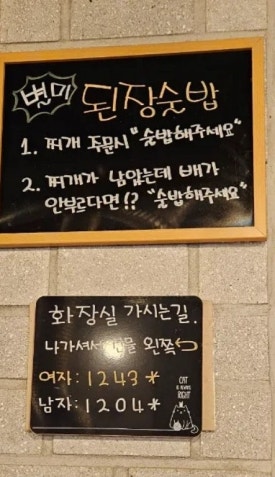 별미 된장술밥
1. 찌개 주문시 "술밥해주세요"
2. 찌개가 남았는데 배가
안부르다면!? "술밥해주세요"
화장실 가시는길.
나가셔서 건물 왼쪽
여자:1243*
남자:1204*
CAT
IS ALWAYS
RIGHT